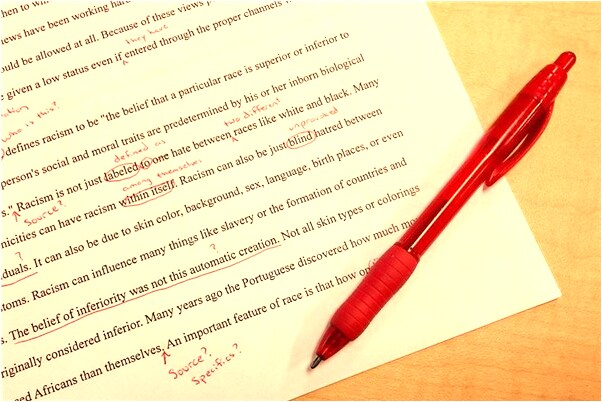 then to wh
ews have been working hard
ould be allowed at all. Because of these views p
they have
e given a low status even if entered through the proper channels
ction
who is this?
defines racism to be "the belief that a particular race is superior or inferior to
person's social and moral traits are predetermined by his or her inborn biological
defined as
two different
unprovoked
s." Racism is not just labeled to one hate between races like white and black. Many
Source?
among themselves
nicities can have racism within itself. Racism can also be just blind hatred between
?
duals. It can also be due to skin color, background, sex, language, birth places, or even
?
toms. Racism can influence many things like slavery or the formation of countries and
s. The belief of inferiority was not this automatic creation. Not all skin types or colorings
riginally considered inferior. Many years ago the Portuguese discovered how much mo
ed Africans than themselves. An important feature of race is that how or
Source?
Specifics?